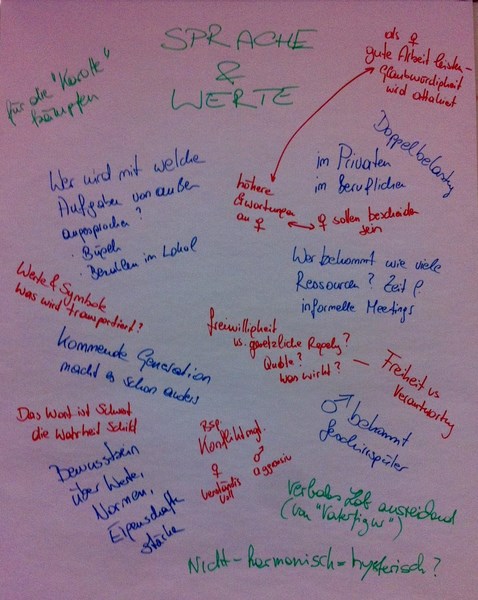 SPRACHE
&
WERTE
für die "Karotte"
kämpfen
als ♀
gute Arbeit leisten -
Glaubwürdigkeit
wird attakiert
Doppelbelastung
im Privaten
im Beruflichen
höhere
Erwartungen
an ♀ ↔ ♀ sollen bescheiden
sein
Wer wird mit welche
Aufgaben von außen
angesprochen?
· Bügeln
· Bezahlen im Lokal
Wer bekommt wie viele
Ressourcen? Zeit
informelle Meetings
Werte & Symbole
Was wird transportiert?
freiwilligkeit
vs. gesetzliche Regelg?
Quote?
was wirkt? — Freiheit vs
Verantwortg
Kommende Generation
macht es schon anders
Das Wort ist Schwert
die Wahrheit Schild
♂ bekommt
Geschirrspüler
Bsp.
Konfliktmgt.
♀
verständnis
voll
♂
aggressiv
Bewusstsein
über Werte,
Normen,
Eigenschafts
stärke
verbales Lob ausreichend
(von "Vaterfigur")
Nicht-harmonisch = hysterisch?